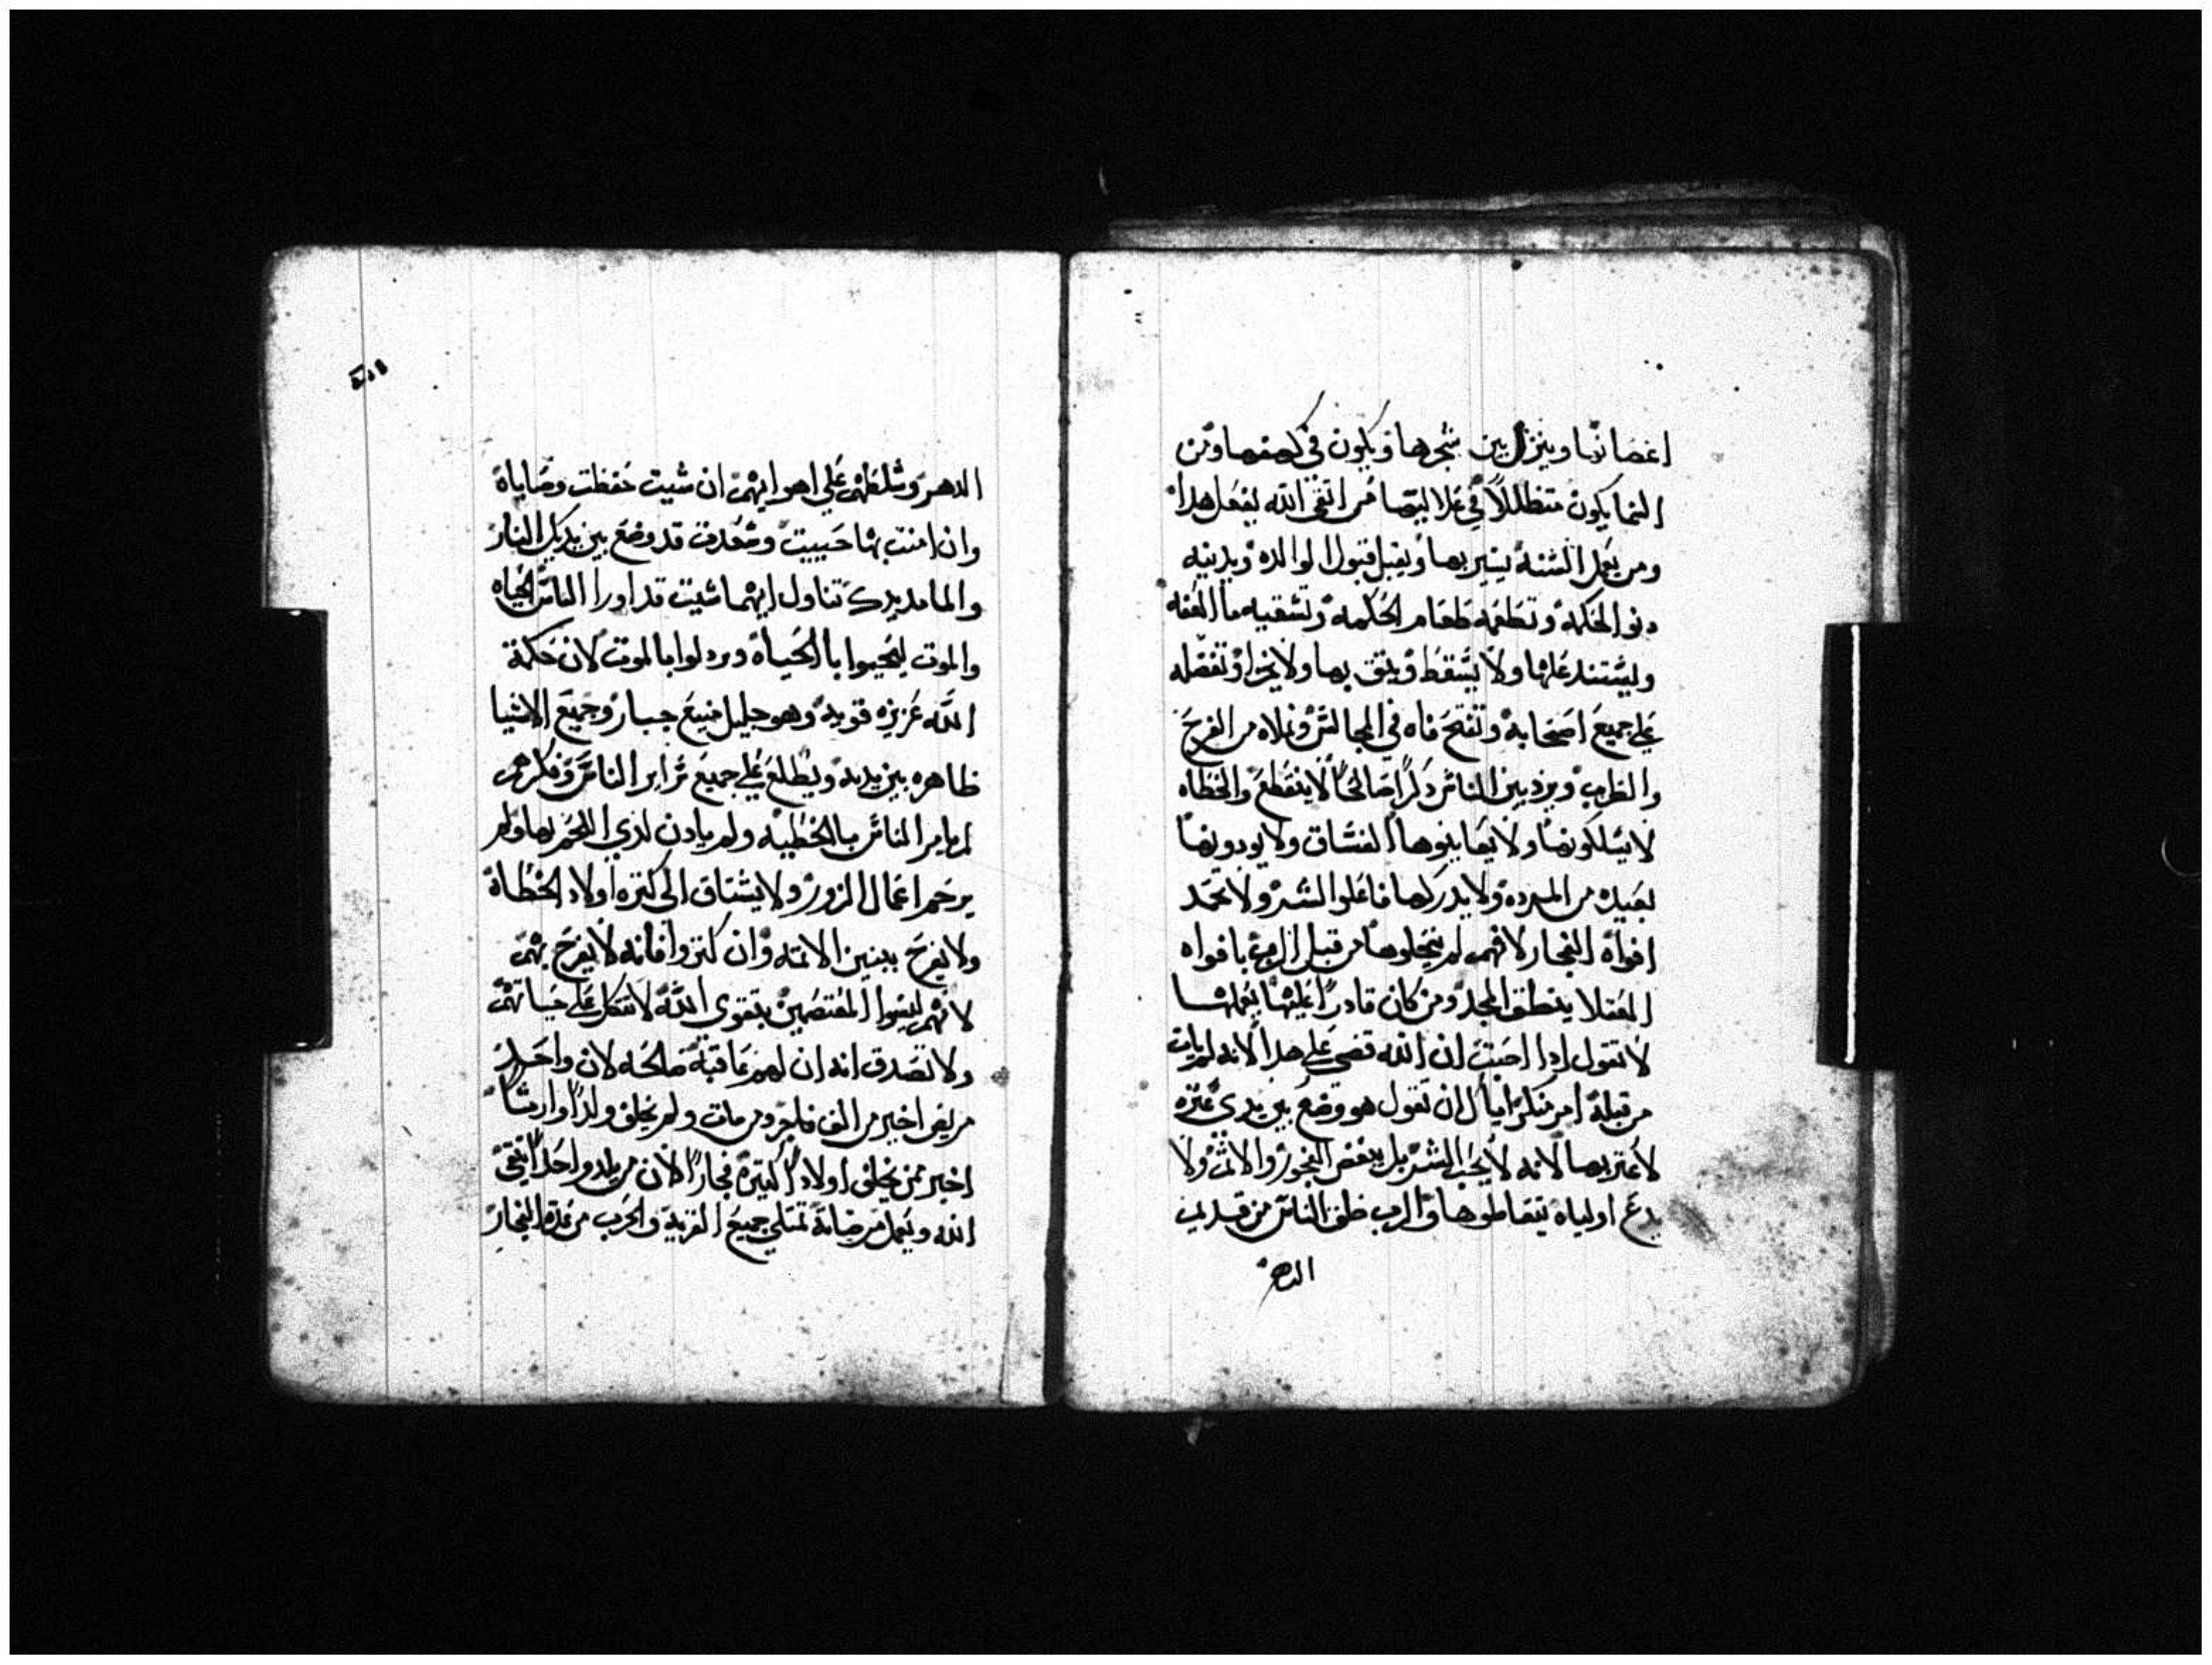 اغصانها وينزل بين شجرها ويكون في كهفها ومن
النما يكون متظللاً في علاليتها من اتقى الله يفعل هدا
ومن يعمل السنة يسير بها ويقبل قبول الوالده وبدنيه
دنو الحكمة وتطعمه طعام الحكمه وتسقيه ما الفقه
وليستند عليها ولا يسقط ويتق بها ولا يخزا وتفضله
علي جميع اصحابه وتفتح فاه في المجالس وتملاه من الفرح
والطرب ويرد بين الناس دكراً صالحاً لا ينقطع والخطاه
لا يسلكونها ولا يعاينوها الفساق ولا يودونها
بعيده من المرده ولا يدركها فاعلوا الشر ولا تحمد
افواة الفجار لانهم لم ينحلوها من قبل الرب بافواه
العقلا ينطق المجد ومن كان قادراً عليها يعلمها
لا تقول ادا احببت ان الله قضى علي هدا لانه لم يات
من قبلة امر منكر اياك ان تقول هو وضع بين يدي عتره
لاعتر بها لانه لا يحب الشر بل يبغض الفجور والاتم ولا
يدع اولياه يتعاطوها والرب خلق الناس من قديم
الدهر
الدهر وسلطهم علي اهوايهم ان شيت حفظت وصاياه
وان امنت بها حييت وسعدت قد وضع بين يديك النار
والما مد يدك تناول ايهما شيت قد اورا الناس الحياه
والموت ليحيوا بالحياة ويردلوا بالموت لان حكمة
الله عزيزه قويه وهو جليل منيع جبار وجميع الاشيا
ظاهره بين يديه ويطلع علي جميع سراير الناس وفكرهم
لم يامر الناس بالخطيه ولم يادن لدي اللحم بها ولم
يرحم اعمال الزور ولا يشتاق الي كتره اولاد الخطاة
ولا يفرح ببنين الاتمه وان كتروا فانه لا يفرح بهم
لانهم ليسوا المعتصمين بتقوى الله لا تتكل علي حياتهم
ولا تصدق انه ان لهم عاقبة صالحه لان واحد
مريض اخير من الف فاجر ومن مات ولم يخلف ولداً وارتاً
اخير ممن يخلف اولاداً كتيرة فجاراً لان من يلد واحداً يتقي
الله ويعمل مرضاته تمتلي جميع القريه والحرب من عدة الفجار